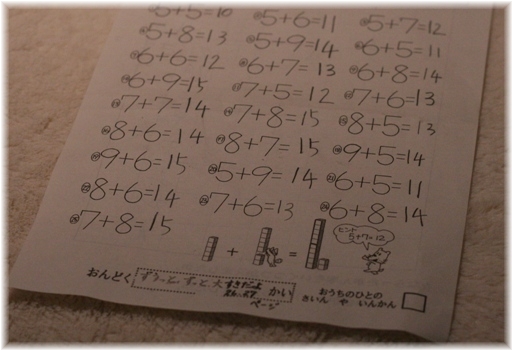 5+5=10 5+6=11 5+7=12
5+8=13 5+9=14 6+5=11
6+6=12 6+7=13 6+8=14
6+9=15 7+5=12 7+6=13
7+7=14 7+8=15 8+5=13
8+6=14 8+7=15 9+5=14
9+6=15 5+9=14 6+5=11
8+6=14 7+6=13 6+8=14
7+8=15
+ =
ヒント
5+7=12
おんどく ずうーっと、ずっと、大すきだよ かい
ページ
おうちのひとの
さいん や いんかん